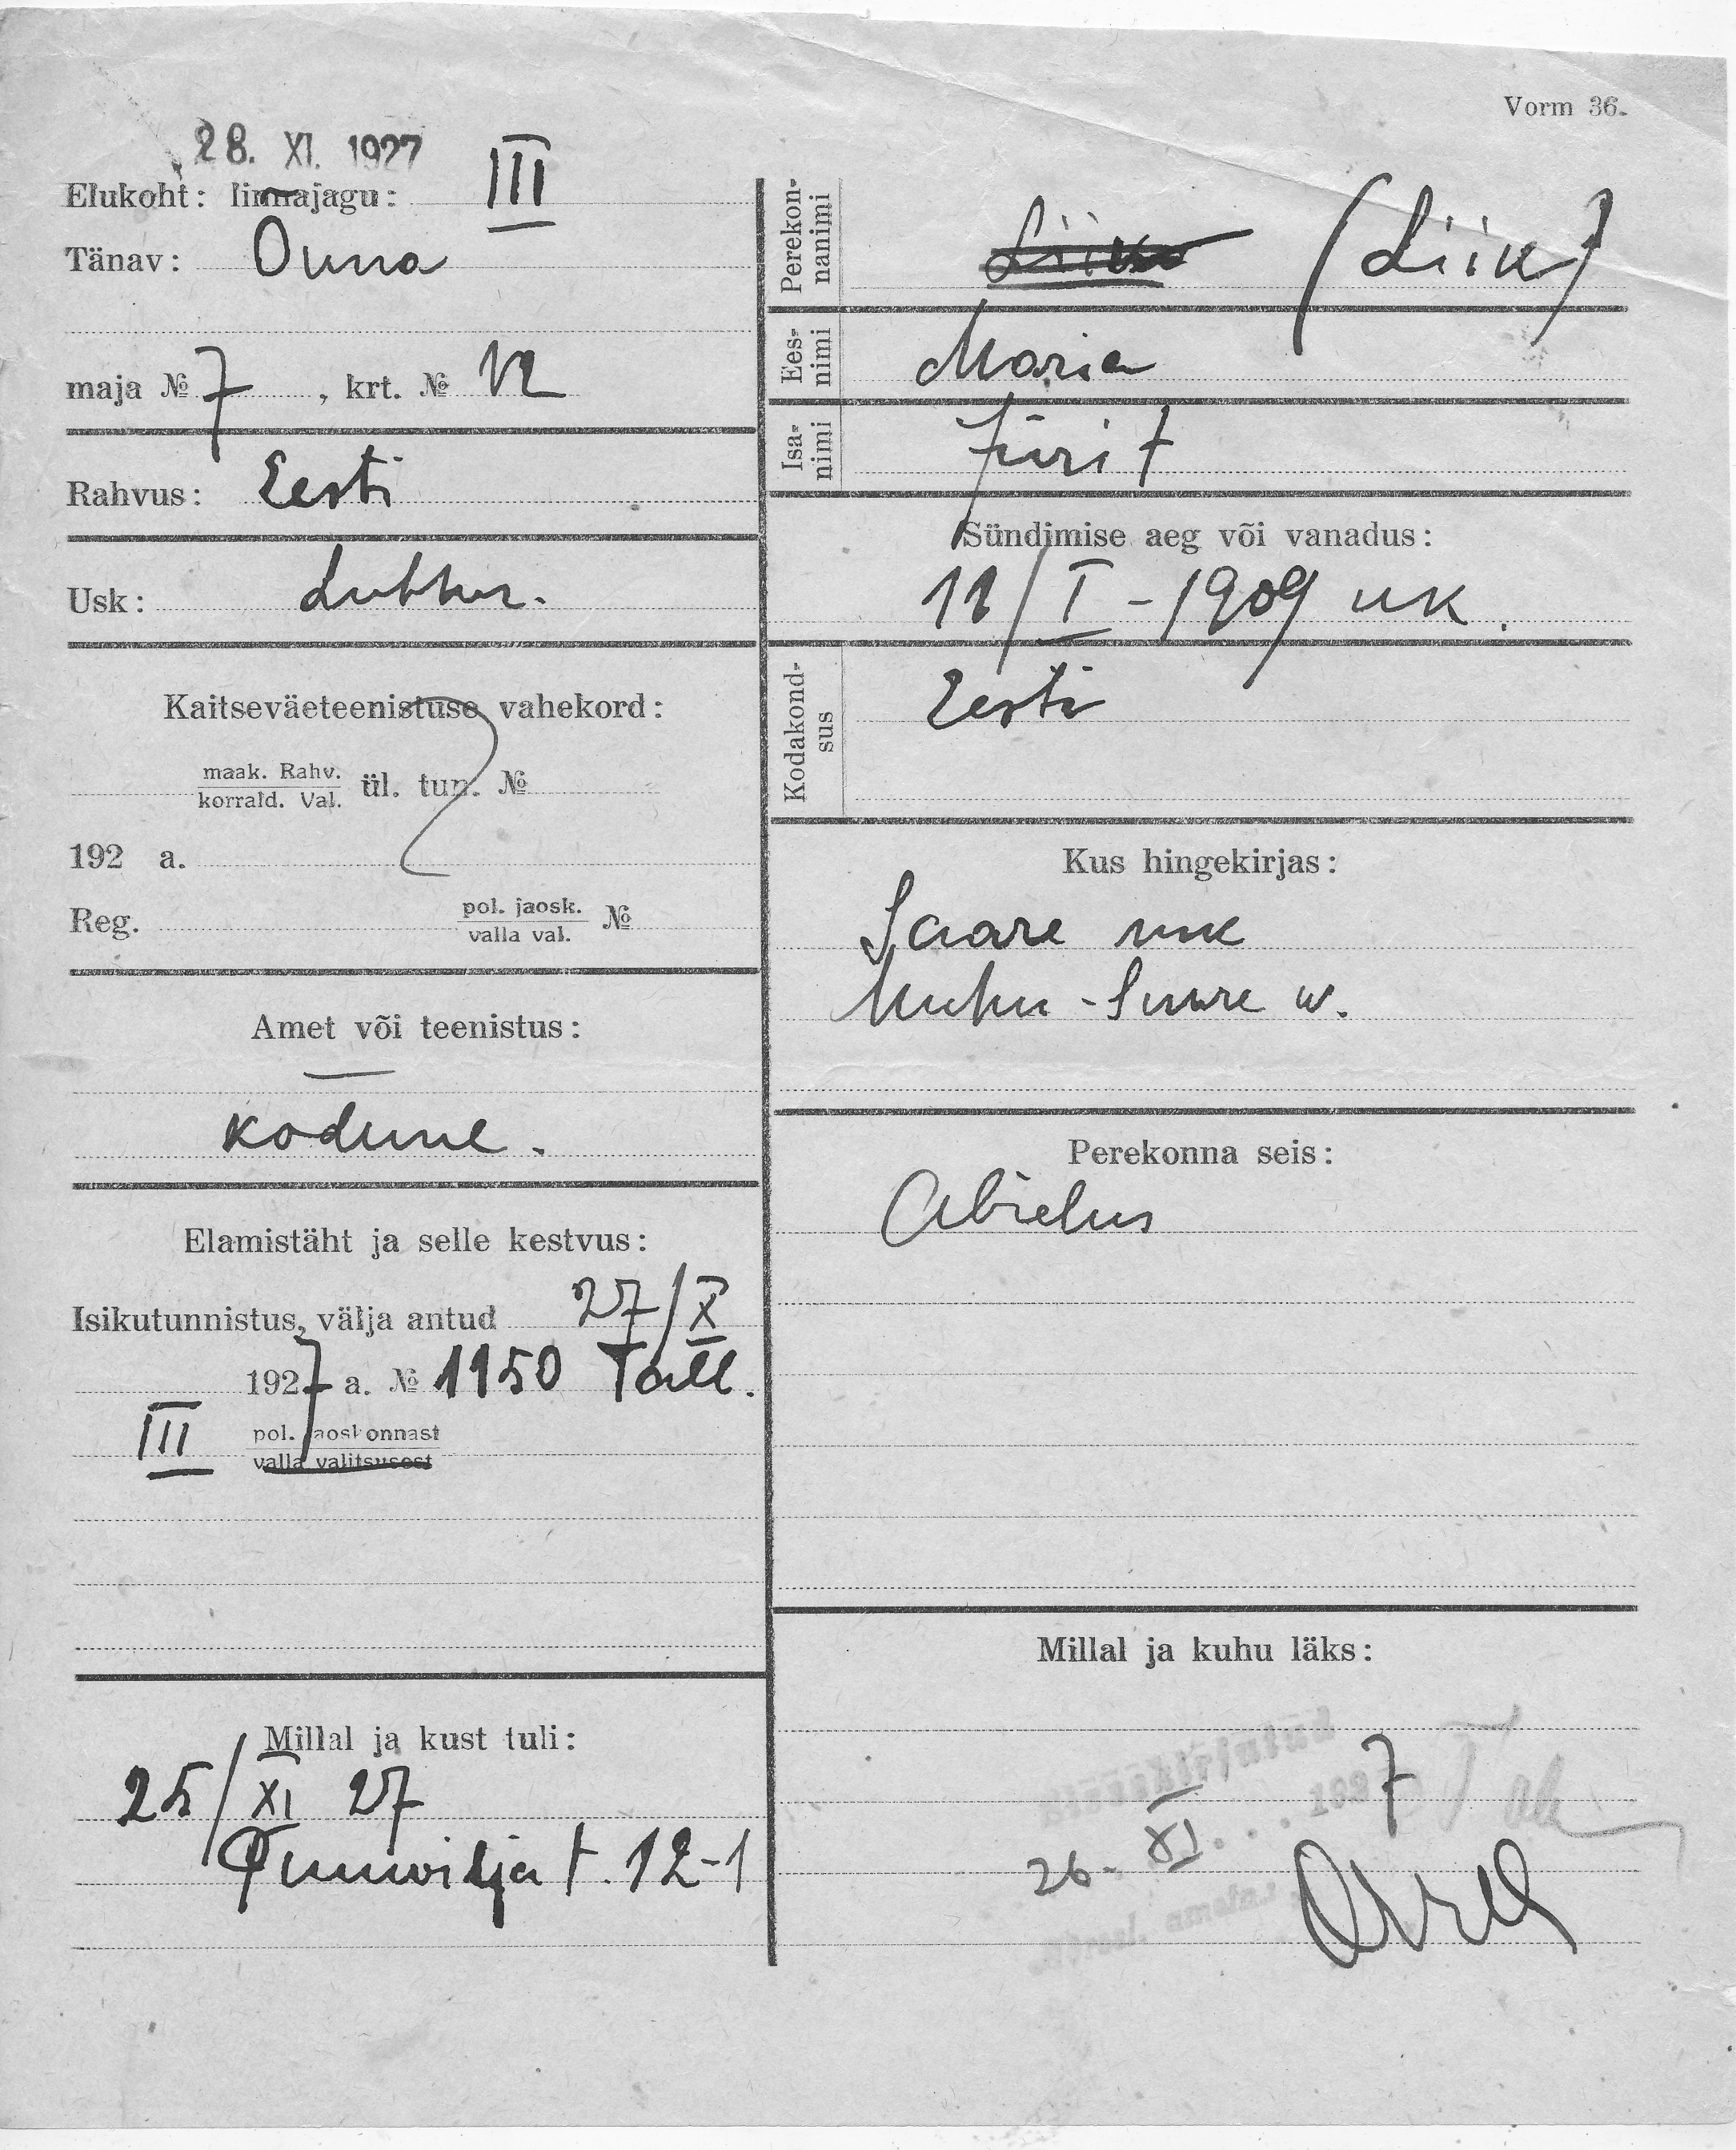 Vorm 36.
28. XI. 1927
Elukoht: linnajagu: III
Tänav: Õuna
maja № 7, krt. № 12
Rahvus: Eesti
Usk: Luther.
Kaitseväeteenistuse vahekord:
maak. Rahv.
korrald. Val. ül. tun. №
192 a.
Reg. pol. jaosk.
valla val. №
Amet või teenistus:
—
kodune.
Elamistäht ja selle kestvus:
Isikutunnistus, välja antud 27/X
1927 a. № 1150 Tall.
III pol. jaoskonnast
valla valitsusest
Millal ja kust tuli:
25/XI 27
t. 12-1
Perekon-
nanimi
(Liik)
Ees-
nimi
Maria
Isa-
nimi
Jüri t
Sündimise aeg või vanadus:
11/I - 1909 uk.
Kodakond-
sus
Eesti
Kus hingekirjas:
Saare mk
Muhu-Suure w.
Perekonna seis:
Abielus
Millal ja kuhu läks:
Sissekirjutud
26. XI. . . . 1927